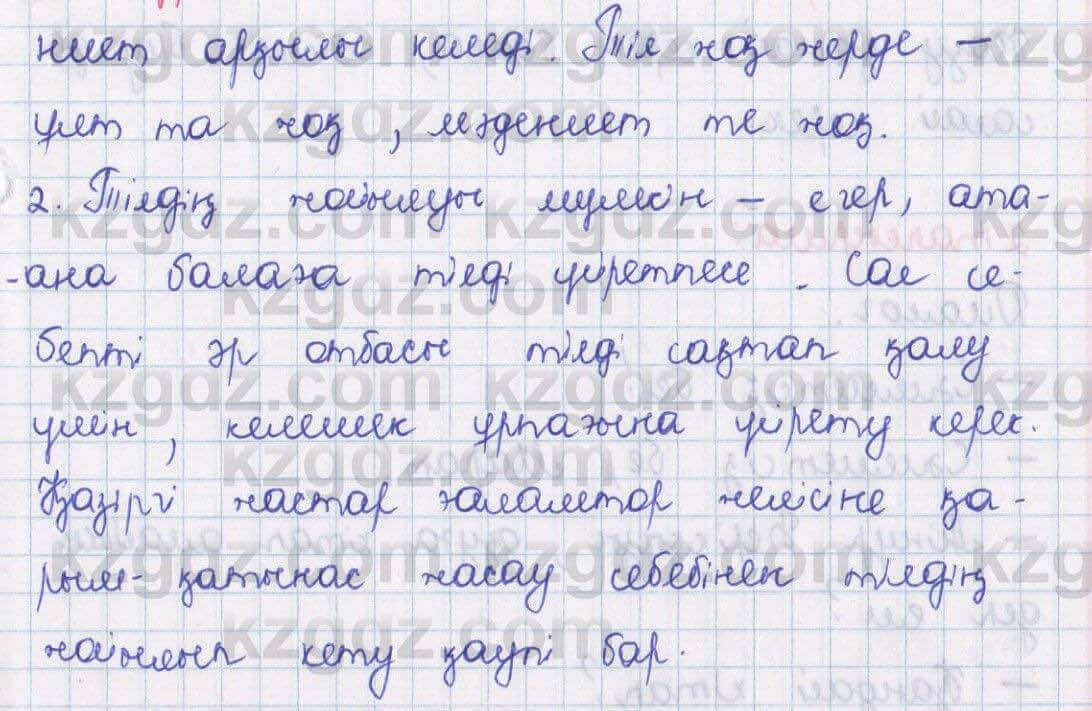 ниет арқылы келеді. Тіл жоқ жерде –
ұлт та жоқ, мәдениет те жоқ.
2. Тілдің жойылуы мүмкін – егер, ата-
-ана балаға тілді үйретпесе. Сол се-
бепті әр отбасы тілді сақтап қалу
үшін, келешек ұрпағына үйрету керек.
Қазіргі жастар ғаламтор желісіне қа-
рым-қатынас жасау себебінен тілдің
жойылып кету қаупі бар.
kzgdz.com